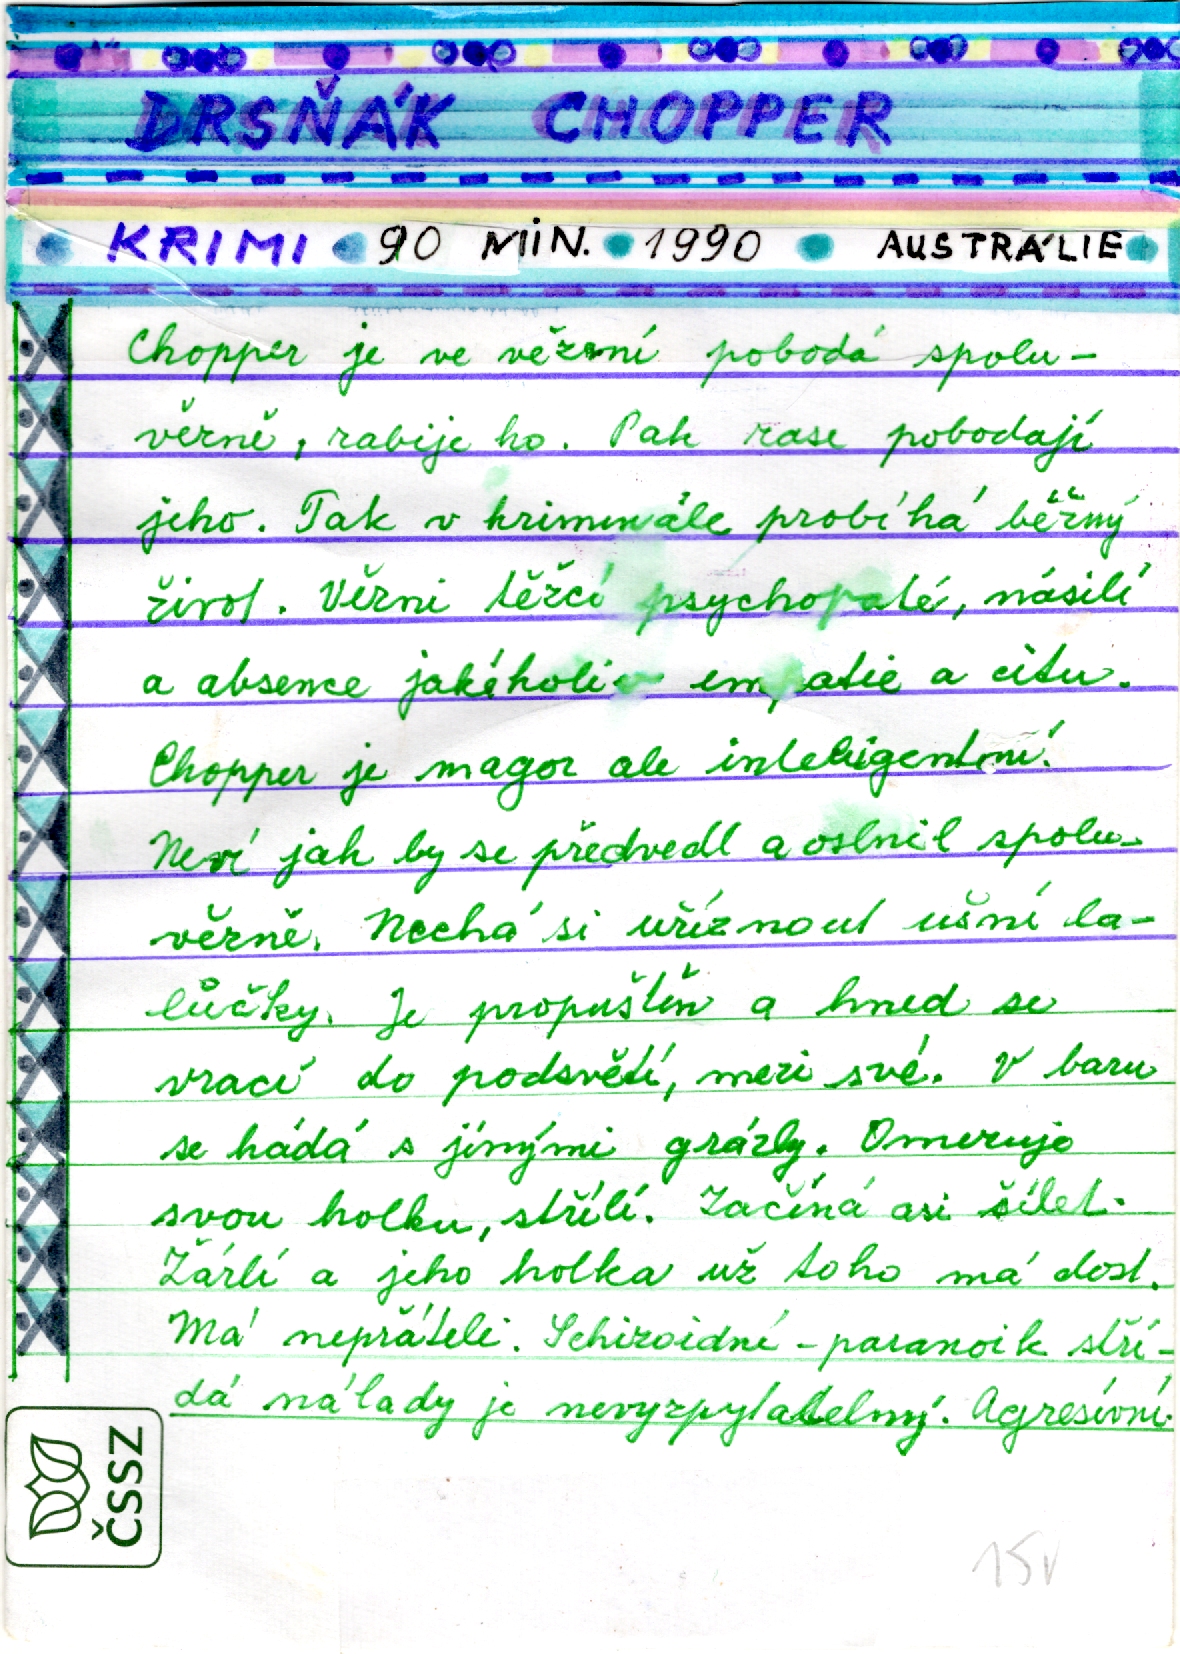 DRSŇÁK CHOPPER
KRIMI 90 MIN. 1990 AUSTRÁLIE
Chopper je ve vězení pobodá spolu-
vězně, zabije ho. Pak zase pobodají
jeho. Tak v kriminále probíhá běžný
život. Vězni těžcí psychopaté, násilí
a absence jakéholiv empatie a citu.
Chopper je magor ale inteligentní.
Neví jak by se předvedl a oslnil spolu-
vězně. Nechá si uříznout ušní la-
lůčky. Je propuštěn a hned se
vrací do podsvětí, mezi své. V baru
se hádá s jinými grázly. Omezuje
svou holku, střílí. Začíná asi šílet.
Žárlí a jeho holka už toho má dost.
Má nepřáteli. Schizoidní - paranoik stří-
dá nálady je nevyzpytatelný. Agresívní.
ČSSZ
15v